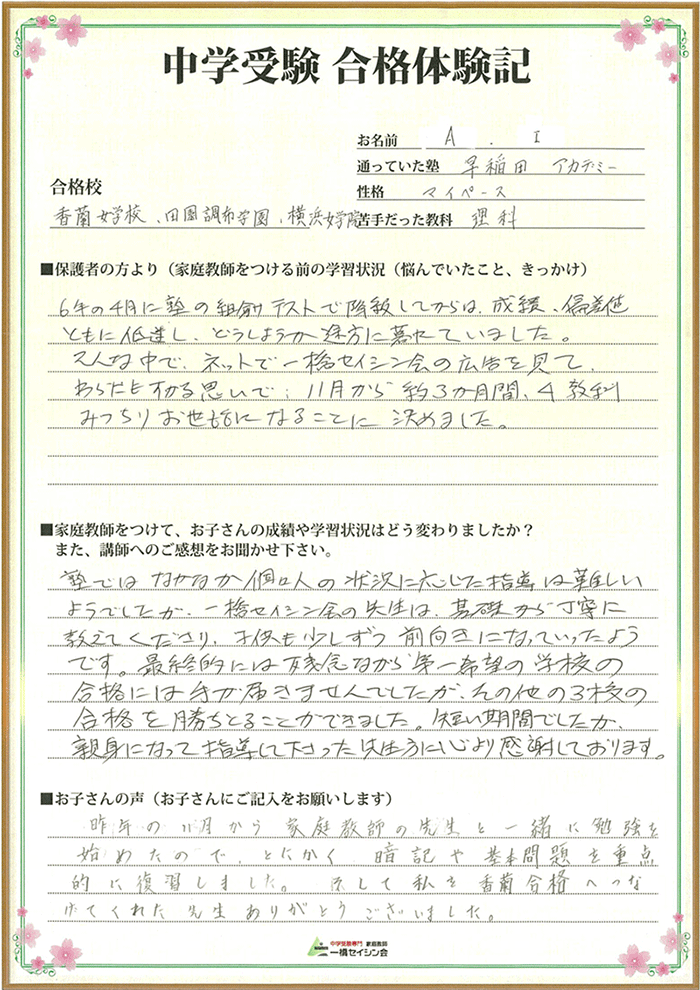 中学受験 合格体験記
お名前 A . I
通っていた塾 早稲田 アカデミー
合格校
性格 マイペース
香蘭女学校、田園調布学園、横浜女学院
苦手だった教科 理科
■保護者の方より（家庭教師をつける前の学習状況（悩んでいたこと、きっかけ）
6年の4月に塾の組分テストで降級してからは、成績、偏差値
ともに低迷し、どうしようか途方に暮れていました。
そんな中で、ネットで一橋セイシン会の広告を見て、
わらにもすがる思いで、11月から約3か月間、4教科
みっちりお世話になることに決めました。
■家庭教師をつけて、お子さんの成績や学習状況はどう変わりましたか？
また、講師へのご感想をお聞かせ下さい。
塾ではなかなか個々人の状況に応じた指導は難しい
ようでしたが、一橋セイシン会の先生は、基礎から丁寧に
教えてくださり、子供も少しずつ前向きになっていったよう
です。最終的には残念ながら第一希望の学校の
合格には手が届きませんでしたが、その他の3校の
合格を勝ちとることができました。短い期間でしたが、
親身になって指導して下さった先生方に心より感謝しております。
■お子さんの声（お子さんにご記入をお願いします）
昨年の11月から家庭教師の先生と一緒に勉強を
始めたので、とにかく 暗記や基本問題を重点
的に復習しました。そして私を香蘭合格へつな
げてくれた先生ありがとうございました。
中学受験専門 家庭教師
一橋セイシン会